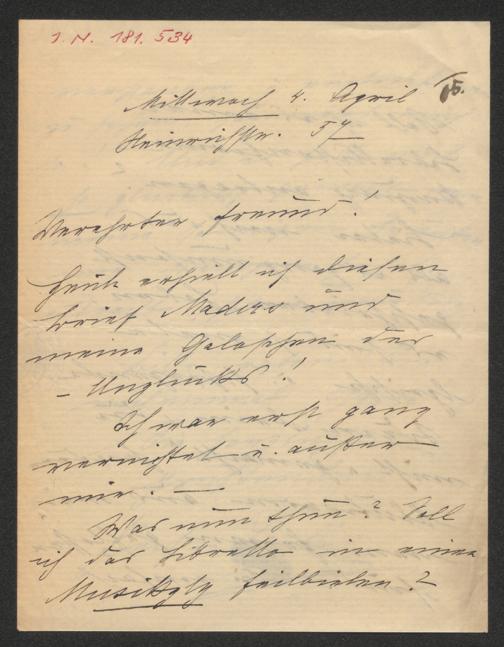 I. N. 181.534
Mittwoch 4. April
Heinrichstr. 57
Verehrter Freund!
Heute erhielt ich diesen
Brief Maders und
meine Galoschen des
– Unglücks!
Ich war erst ganz
vernichtet u. außer
mir. —
Was nun thun? Soll
ich das Libretto in einer
Musikztg feilbieten?